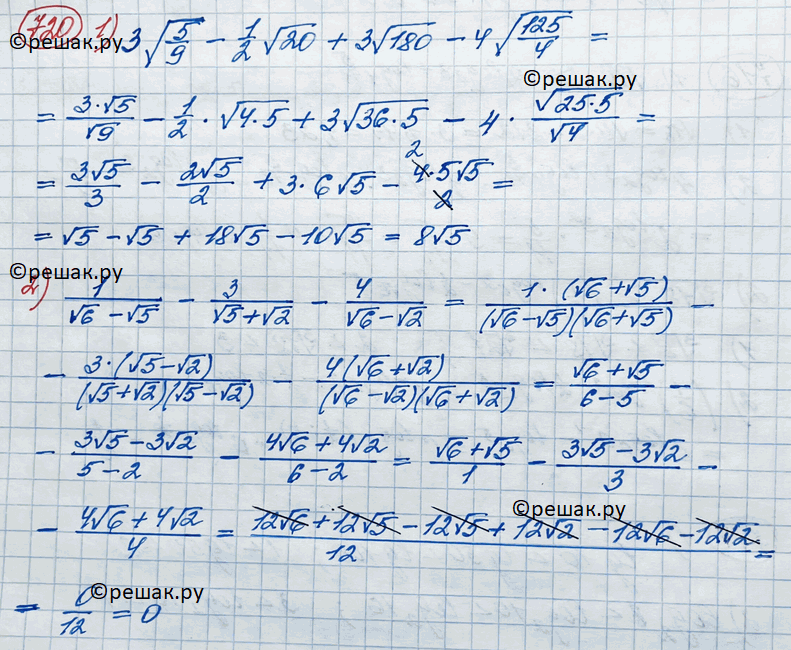 720 1) 3√(5/9) − 1/2 √20 + 3√180 − 4√(125/4) =
©решак.ру
©решак.ру
= (3·√5)/√9 − 1/2 · √(4·5) + 3√(36·5) − 4 · √(25·5)/√4 =
= 3√5/3 − 2√5/2 + 3·6√5 − 4·5√5/2 = 2
= √5 − √5 + 18√5 − 10√5 = 8√5
©решак.ру
2) 1/(√6 − √5) − 3/(√5 + √2) − 4/(√6 − √2) = 1·(√6 + √5)/((√6 − √5)(√6 + √5)) −
− 3·(√5 − √2)/((√5 + √2)(√5 − √2)) − 4(√6 + √2)/((√6 − √2)(√6 + √2)) = (√6 + √5)/(6 − 5) −
− (3√5 − 3√2)/(5 − 2) − (4√6 + 4√2)/(6 − 2) = (√6 + √5)/1 − (3√5 − 3√2)/3 −
©решак.ру
− (4√6 + 4√2)/4 = (12√6 + 12√5 − 12√5 + 12√2 − 12√6 − 12√2)/12 =
©решак.ру
= 0/12 = 0